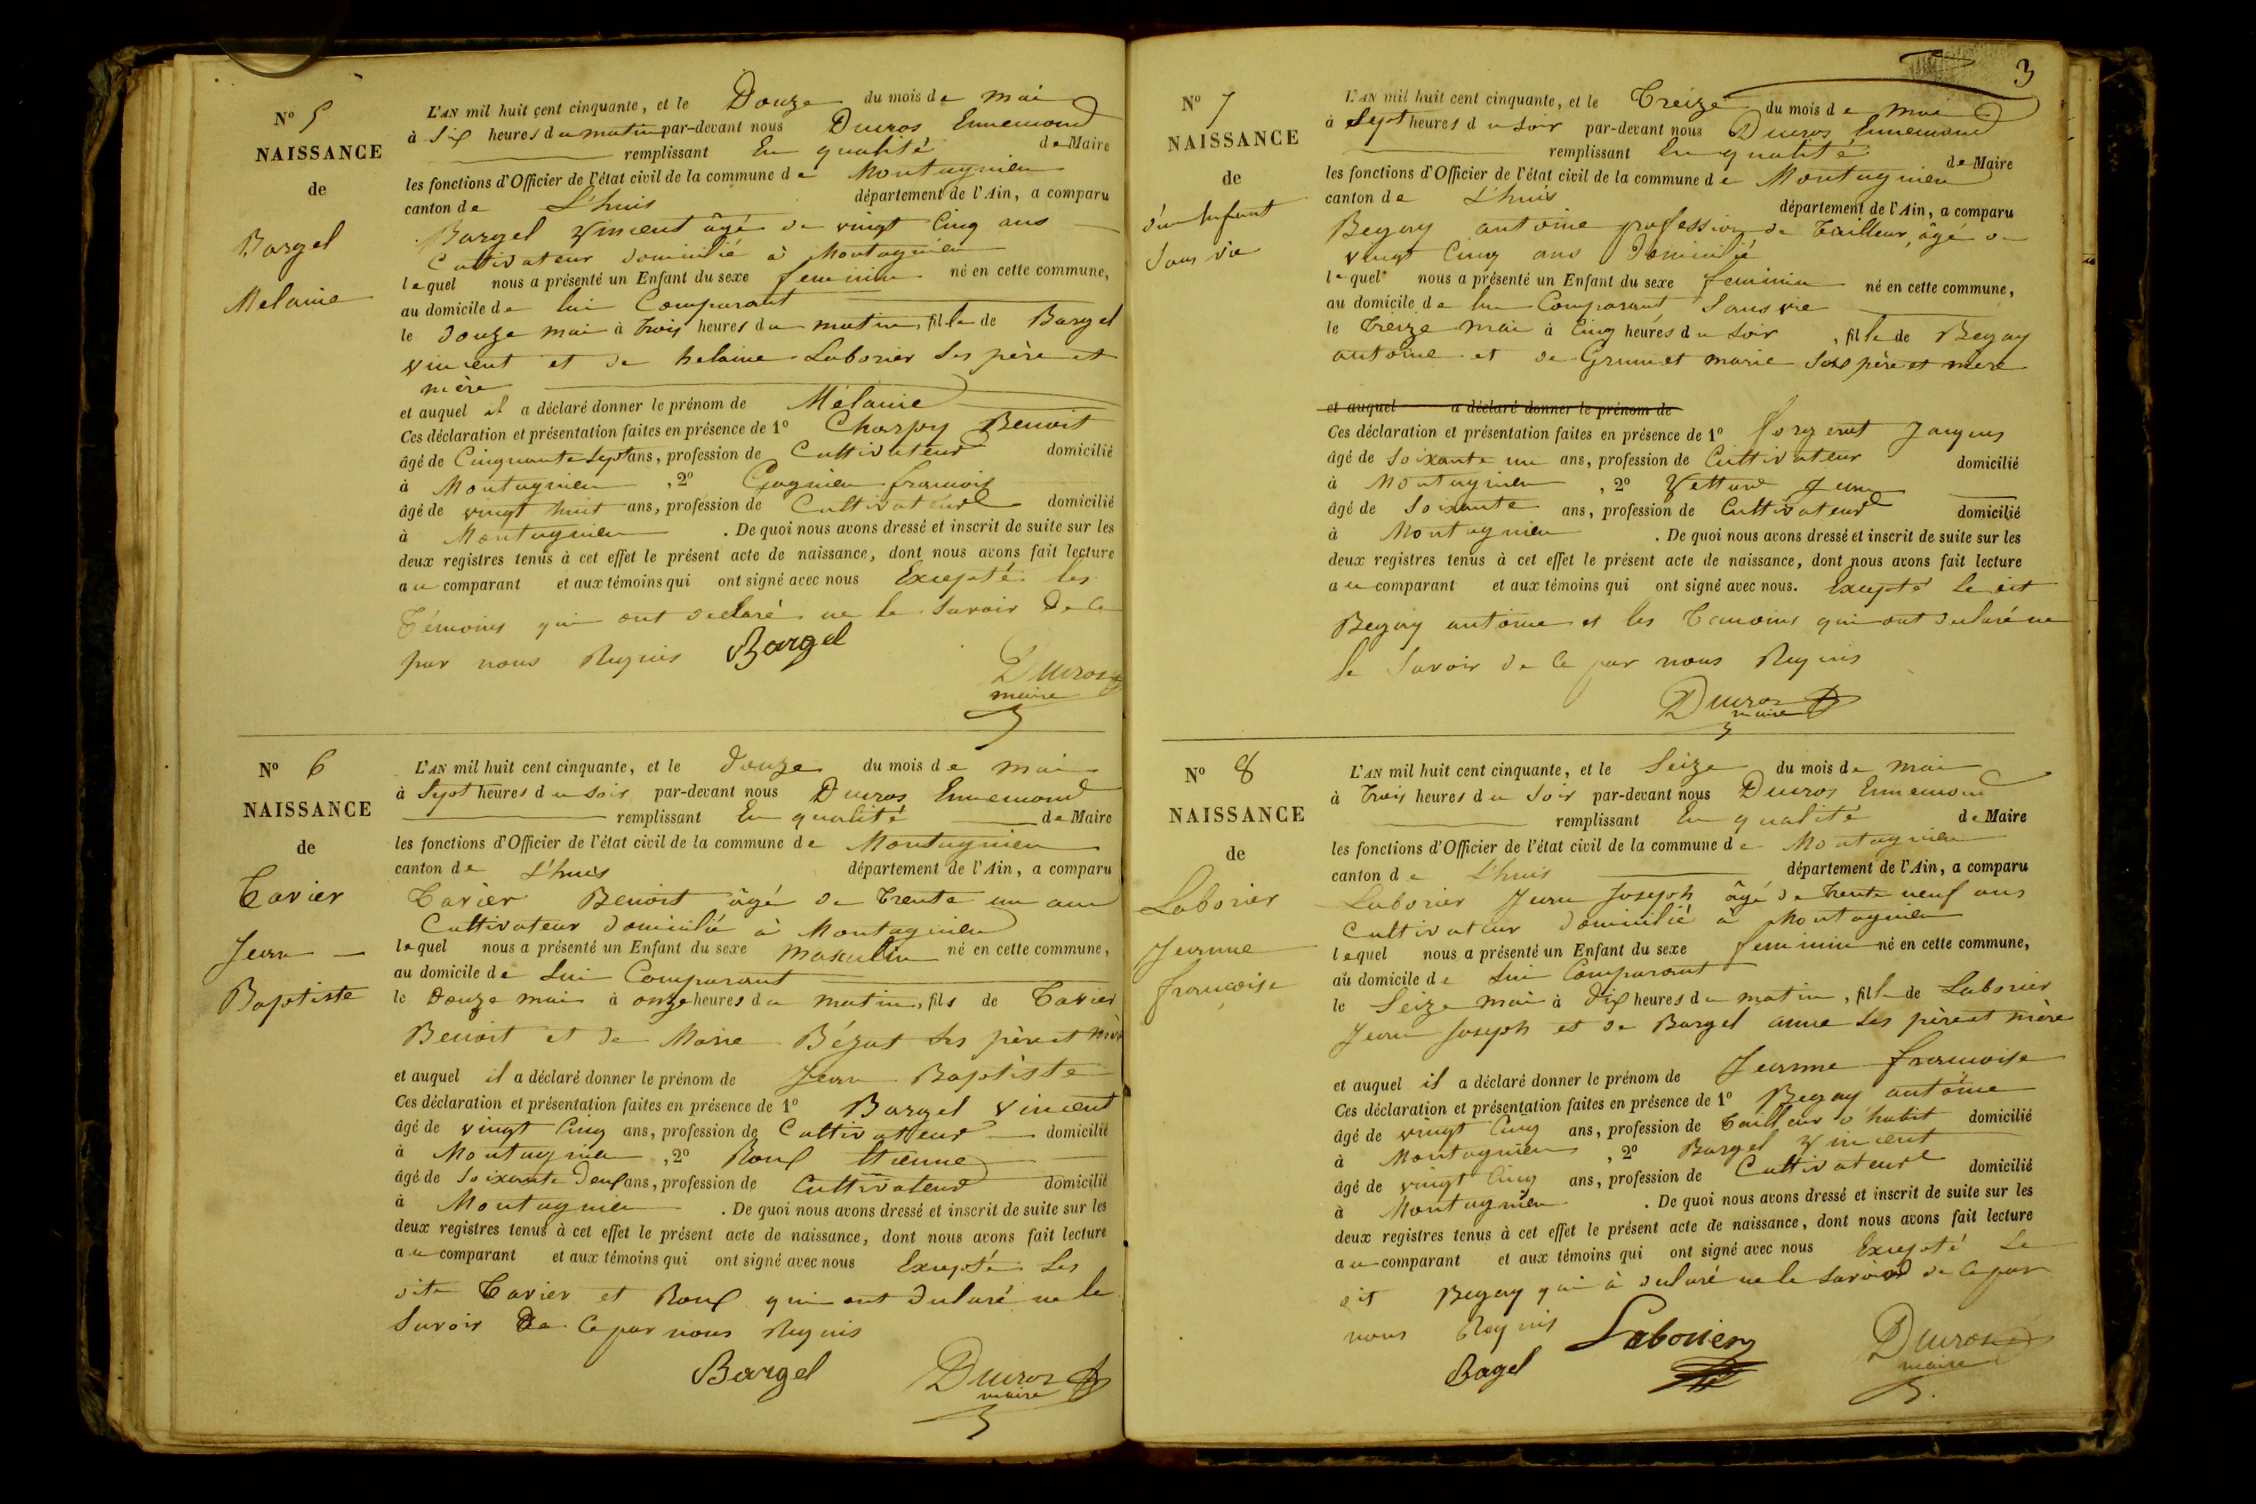 N° 5
NAISSANCE
de
Bargel
Melanie
L'AN mil huit cent cinquante, et le Douze du mois de mai
à Six heures du matin par-devant nous Ducros Ennemond
remplissant En qualité de Maire
les fonctions d'Officier de l'état civil de la commune de Montagnieu
canton de L'huis département de l'Ain, a comparu
Bargel Vincent âgé de vingt Cinq ans
Cultivateur domicilié à Montagnieu
lequel nous a présenté un Enfant du sexe feminin né en cette commune,
au domicile de lui Comparant
le douze mai à trois heures du matin, fille de Bargel
vincent et de helaine Laborier Ses père et
mère
et auquel il a déclaré donner le prénom de Mélanie
Ces déclaration et présentation faites en présence de 1° Charpy Benoit
âgé de Cinquante Sept ans, profession de Cultivateur domicilié
à Montagnieu, 2° françois
âgé de vingt huit ans, profession de Cultivateur domicilié
à Montagnieu. De quoi nous avons dressé et inscrit de suite sur les
deux registres tenus à cet effet le présent acte de naissance, dont nous avons fait lecture
au comparant et aux témoins qui ont signé avec nous Excepté les
Témoins qui ont declaré ne le Savoir De Ce
par nous Requis Bargel
Ducros
maire
N° 6
NAISSANCE
de
Tavier
Jean
Baptiste
L'AN mil huit cent cinquante, et le douze du mois de mai
à Sept heures du Soir par-devant nous Ducros Ennemond
remplissant En qualité de Maire
les fonctions d'Officier de l'état civil de la commune de Montagnieu
canton de L'huis département de l'Ain, a comparu
Tavier Benoit âgé de Trente un ans
Cultivateur domicilié à Montagnieu
lequel nous a présenté un Enfant du sexe masculin né en cette commune,
au domicile de Lui Comparant
le Douze mai à onze heures du matin, fils de Tavier
Benoit et de Marie Bézat Ses père et mère
et auquel il a déclaré donner le prénom de Jean Baptiste
Ces déclaration et présentation faites en présence de 1° Bargel Vincent
âgé de vingt Cinq ans, profession de Cultivateur domicilié
à Montagnieu, 2° Roux Etienne
âgé de Soixante Deux ans, profession de Cultivateur domicilié
à Montagnieu. De quoi nous avons dressé et inscrit de suite sur les
deux registres tenus à cet effet le présent acte de naissance, dont nous avons fait lecture
au comparant et aux témoins qui ont signé avec nous Excepté Les
dits Tavier et Roux qui ont Declaré ne le
Savoir De Ce par nous Requis
Bargel Ducros
maire
3
N° 7
NAISSANCE
de
d'un Enfant
Sans vie
L'AN mil huit cent cinquante, et le Treize du mois de mai
à Sept heures du Soir par-devant nous Ducros Ennemond
remplissant En qualité de Maire
les fonctions d'Officier de l'état civil de la commune de Montagnieu
canton de L'huis département de l'Ain, a comparu
Begay antoine profession de Tailleur, âgé de
vingt Cinq ans Domicilié
lequel nous a présenté un Enfant du sexe feminin né en cette commune,
au domicile de lui Comparant Sans vie
le Treize mai à Cinq heures du Soir, fille de Begay
antoine et de Grumet marie Ses père et mere
et auquel a déclaré donner le prénom de
Ces déclaration et présentation faites en présence de 1° Jaques
âgé de Soixante un ans, profession de Cultivateur domicilié
à Montagnieu, 2° Vettard Jean
âgé de Soixante ans, profession de Cultivateur domicilié
à Montagnieu. De quoi nous avons dressé et inscrit de suite sur les
deux registres tenus à cet effet le présent acte de naissance, dont nous avons fait lecture
au comparant et aux témoins qui ont signé avec nous. Excepté Le dit
Begay antoine et les Temoins qui ont declaré ne
le Savoir de Ce par nous Requis
Ducros
maire
N° 8
NAISSANCE
de
Laborier
Jeanne
françoise
L'AN mil huit cent cinquante, et le Seize du mois de mai
à Trois heures du Soir par-devant nous Ducros Ennemond
remplissant En qualité de Maire
les fonctions d'Officier de l'état civil de la commune de Montagnieu
canton de L'huis département de l'Ain, a comparu
Laborier Jean Joseph âgé de Trente neuf ans
Cultivateur Domicilié à Montagnieu
lequel nous a présenté un Enfant du sexe feminin né en cette commune,
au domicile de Lui Comparant
le Seize mai à dix heures du matin, fille de Laborier
Jean Joseph et de Bargel anne Ses père et mère
et auquel il a déclaré donner le prénom de Jeanne françoise
Ces déclaration et présentation faites en présence de 1° Begay antoine
âgé de vingt Cinq ans, profession de Tailleur d'habit domicilié
à Montagnieu, 2° Bargel Vincent
âgé de vingt Cinq ans, profession de Cultivateur domicilié
à Montagnieu. De quoi nous avons dressé et inscrit de suite sur les
deux registres tenus à cet effet le présent acte de naissance, dont nous avons fait lecture
au comparant et aux témoins qui ont signé avec nous Excepté Le
dit Begay qui à declaré ne le Savoir de Ce par
nous Requis Laborier Ducros
Bagel maire